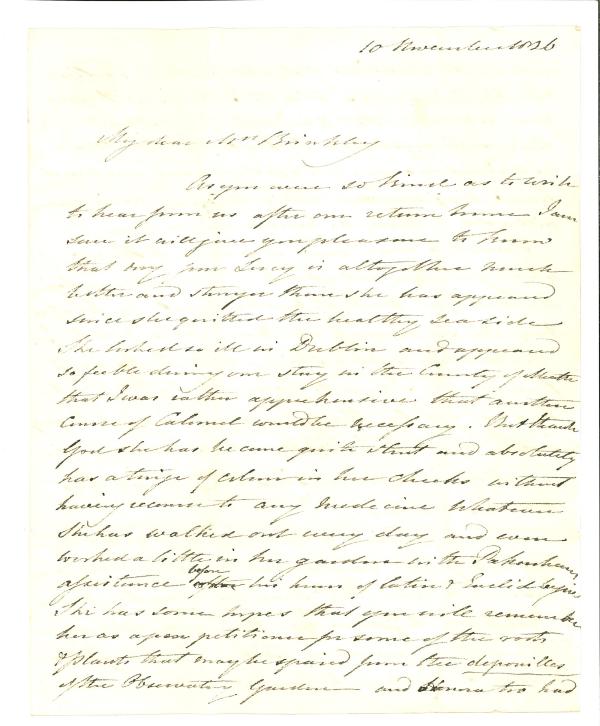 10 November 1836
My dear Mrs Brinkley
As you were so kind as to wish
to hear from us after our return home I am
sure it will give you pleasure to know
that my poor Lucy is altogether much
better and stronger than she has appeared
since she quitted the healthy sea side
She looked so ill in Dublin and appeared
so feeble during our stay in the County of Meath
that I was rather apprehensive that another
course of Calomel would be necessary. But thank
God she has became quite stout and absolutely
has a tinge of colour in her cheeks without
having recourse to any medicine whatever
She has walked out every day and even
worked a little in her garden with Pakenhams
assistance before his hours of latin & Euclid begin
She has some hopes that you will remember
her as a poor petitioner for some of the roots
& plants that may be spared from the depouilles
of the Observatory Garden and too had